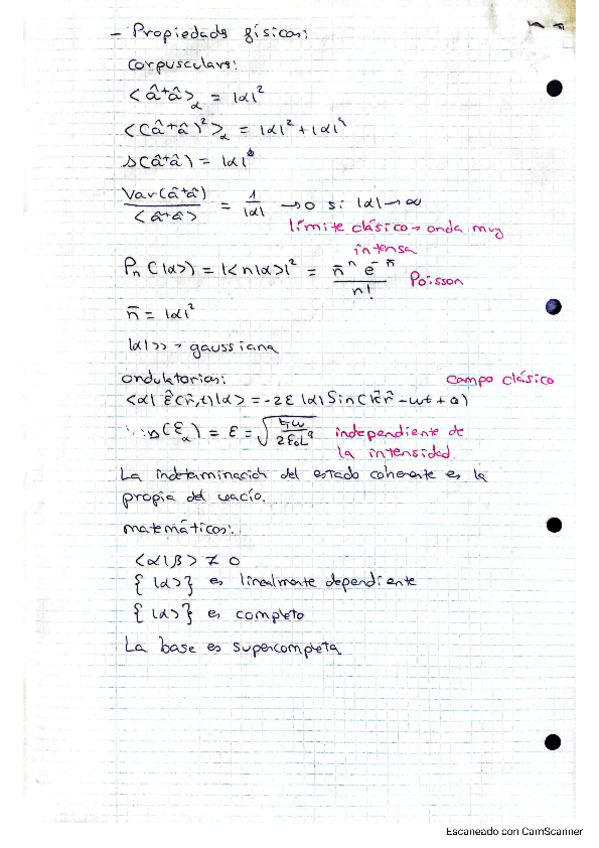 - Propiedads físicas:
corpusculars:
<â⁺â>_α = |α|²
<(â⁺â)²>_α = |α|² + |α|⁴
Δ(â⁺â) = |α|
Var(â⁺â) / <â⁺â> = 1/|α| → 0 si |α| → ∞
límite clásico → onda muy
intensa
Pn(|α>) = |<n|α>|² = n̄ⁿ e^-n̄ / n! Poisson
n̄ = |α|²
|α|>> → gaussiana
ondulatorias: campo clásico
<α| Ê(r̄,t)|α> = -2ε |α| Sin(k̄r̄ - ωt + θ)
Δ(ε_α) = ε = √(ħω / 2ε₀L³) independiente de
la intensidad.
La indeterminación del estado coherente es la
propia del vacío.
matemáticos:
<α|β> ≠ 0
{|α>} es linealmente dependiente
{|α>} es completo
La base es supercompleta
Escaneado con CamScanner